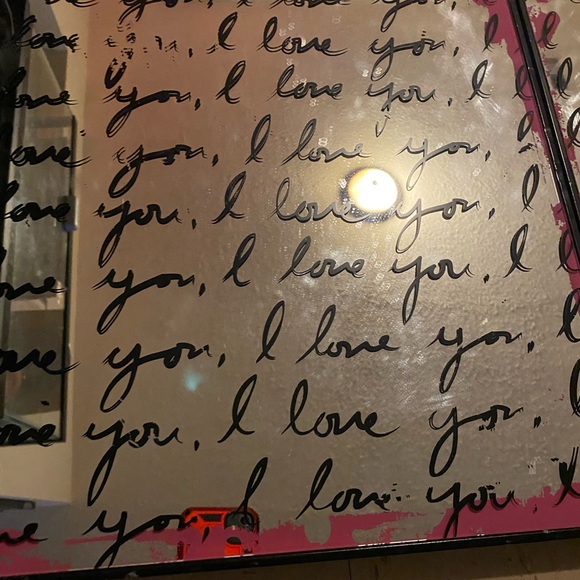 you, I love you,
love you, I love you, I
love you, I love you, I
love you, I love you,
love you, I love you, I
love you, I love you, I
love you, I love you,
love you, I love you,
you, I love you, I